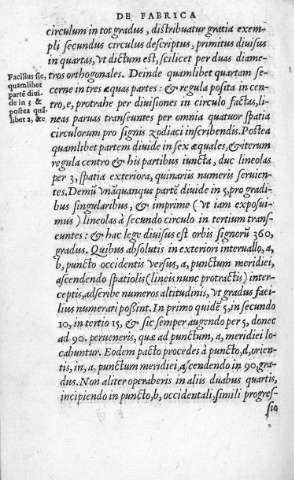 DE FABRICA
circulum in tot gradus, distribuatur gratia exem
pli secundus circulus descriptus, primitus diuisus
in quartas, vt dictum est, scilicet per duas diame-
tros orthogonales. Deinde quamlibet quartam se-
cerne in tres æquas partes: & regula posita in cen-
tro, e, protrahe per diuisiones in circulo factas, li-
neas paruas transeuntes per omnia quatuor spatia
circulorum pro signis zodiaci inscribendis. Postea
quamlibet partem diuide in sex æquales, & iterum
regula centro & his partibus iuncta, duc lineolas
per 3, spatia exteriora, quinariis numeris seruien-
tes. Demũ vnãquanque partẽ diuide in 5, pro gradi-
bus singularibus, & imprime (vt iam exposui-
mus) lineolas à secundo circulo in tertium transe-
untes: & hac lege diuisus est orbis signorũ 360,
gradus. Quibus absolutis in exteriori interuallo, a,
b, puncto occidentis versus, a, punctum meridiei,
ascendendo spatiolis (lineis nunc protractis) inter-
ceptis, adscribe numeros altitudinis, vt gradus faci-
lius numerari possint. In primo quidẽ 5, in secundo
10, in tertio 15, & sic semper augendo per 5, donec
ad 90. perueneris, quæ ad punctum, a, meridiei lo-
cabuntur. Eodem pacto procedes à puncto, d, orien-
tis, in, a, punctum meridiei, ascendendo in 90, gra-
dus. Non aliter operaberis in aliis duabus quartis,
incipiendo in puncto, b, occidentali, simili progres-
sio
Facilius sic,
quamlibet
partẽ diui-
de in 3 &
postea quã
libet 2, &c.